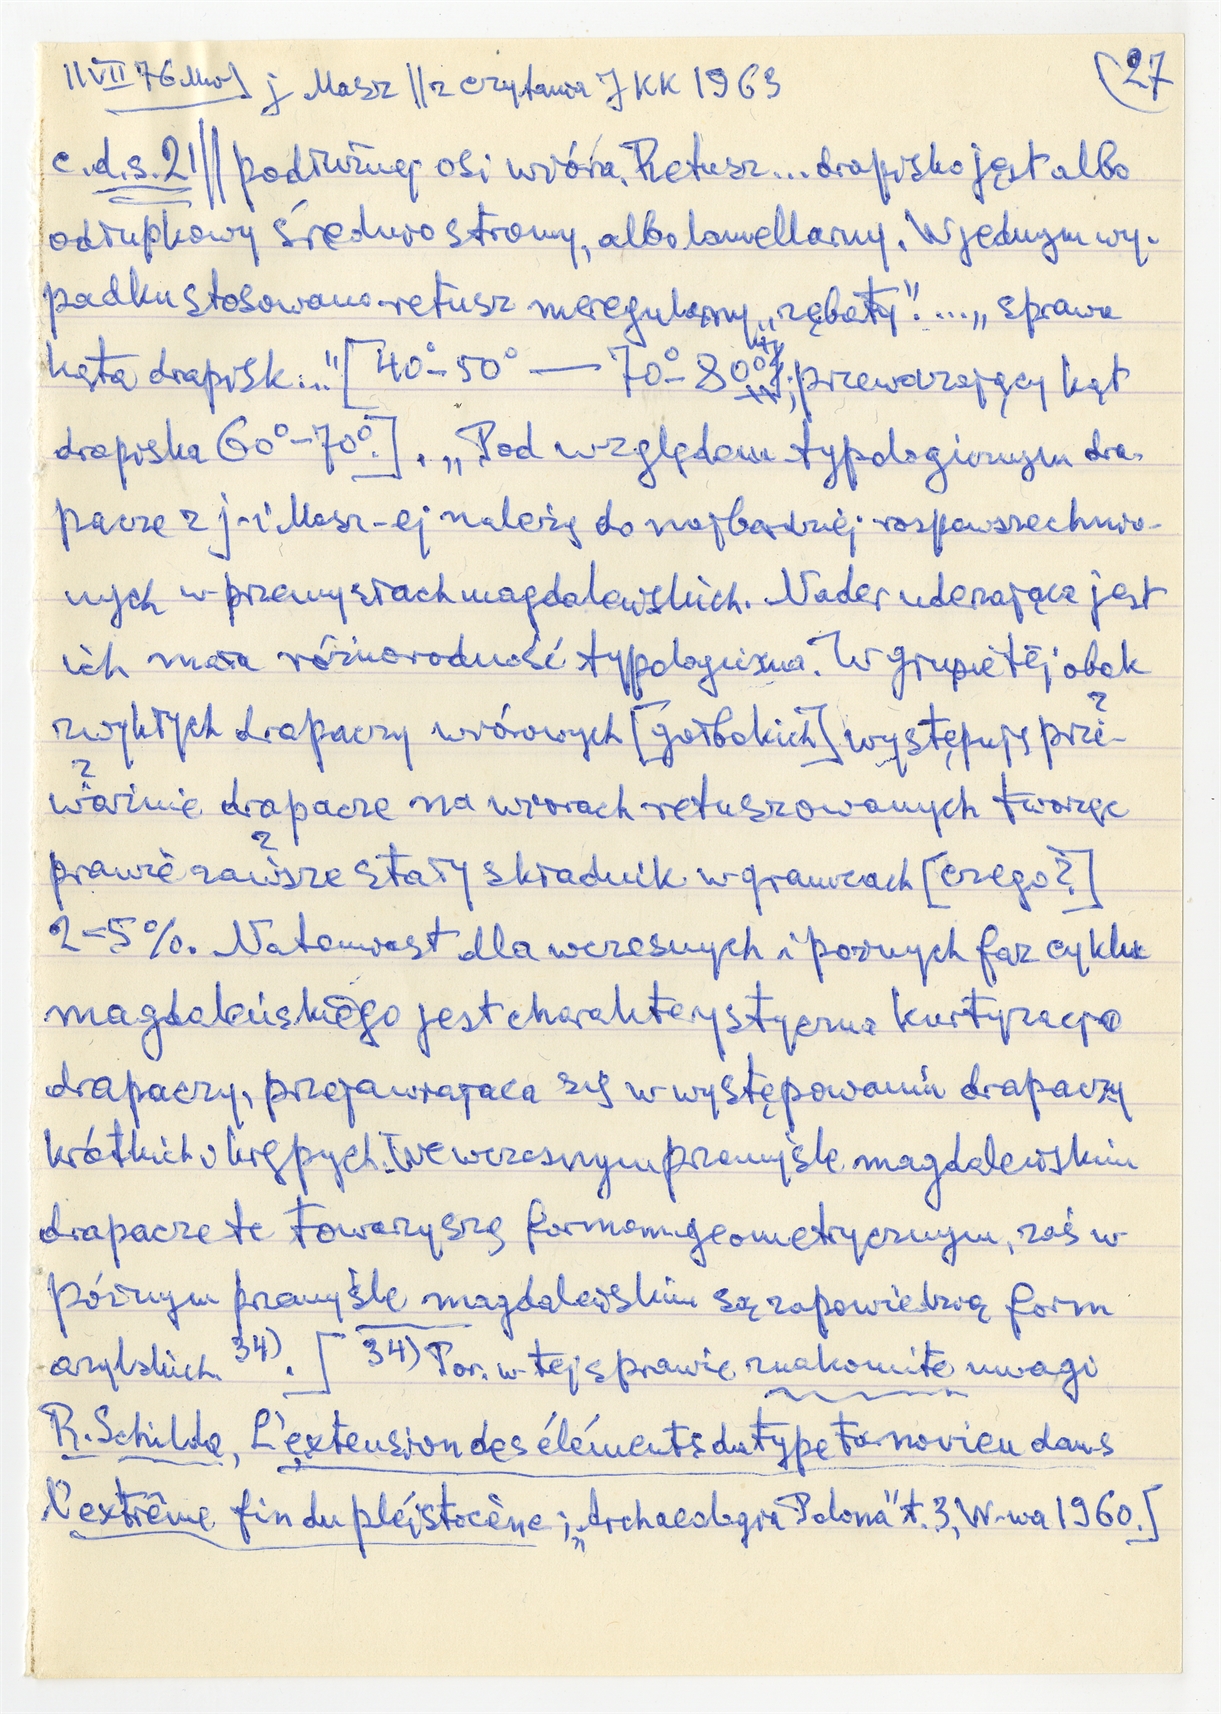 11 VII 76 Mw] j Masz || z czytania JKK 1963 (27
c.d.s. 21 || podłużnej osi wióra. Retusz... drapiska jest albo
odłupkowy średnio stromy, albo lamellarny. W jednym wy-
padku stosowano retusz nieregularny „zębaty". ... „sprawa
kąta drapisk..." [40°–50° — 70°–80°; przeważający kąt
drapiska 60°–70°.]. „Pod względem typologicznym dra-
pacze z j-i Masz-ej należą do najbardziej rozpowszechnio-
nych w przemysłach magdaleńskich. Nader uderzająca jest
ich mała różnorodność typologiczna. W grupie tej obok
zwykłych drapaczy wiórowych [gołbokich] występują prze-
ważnie drapacze na wiórach retuszowanych tworząc
prawie zawsze stały składnik w granicach [czego?]
2–5%. Natomiast dla wczesnych i póżnych faz cyklu
magdaleńskiego jest charakterystyczna kurtyzacja
drapaczy, przejawiająca się w występowaniu drapaczy
krótkich i krępych. We wczesnym przemyśle magdaleńskim
drapacze te towarzyszą formom geometrycznym, zaś w
póżnym przemyśle magdaleńskim są zapowiedzią form
azylskich 34). [34) Por. w tej sprawie znakomite uwagi
R. Schilda, L'extension des éléments du type tarnovien dans
l'extrême fin du pléistocène; „Archaeologia Polona" t. 3, W-wa 1960.]